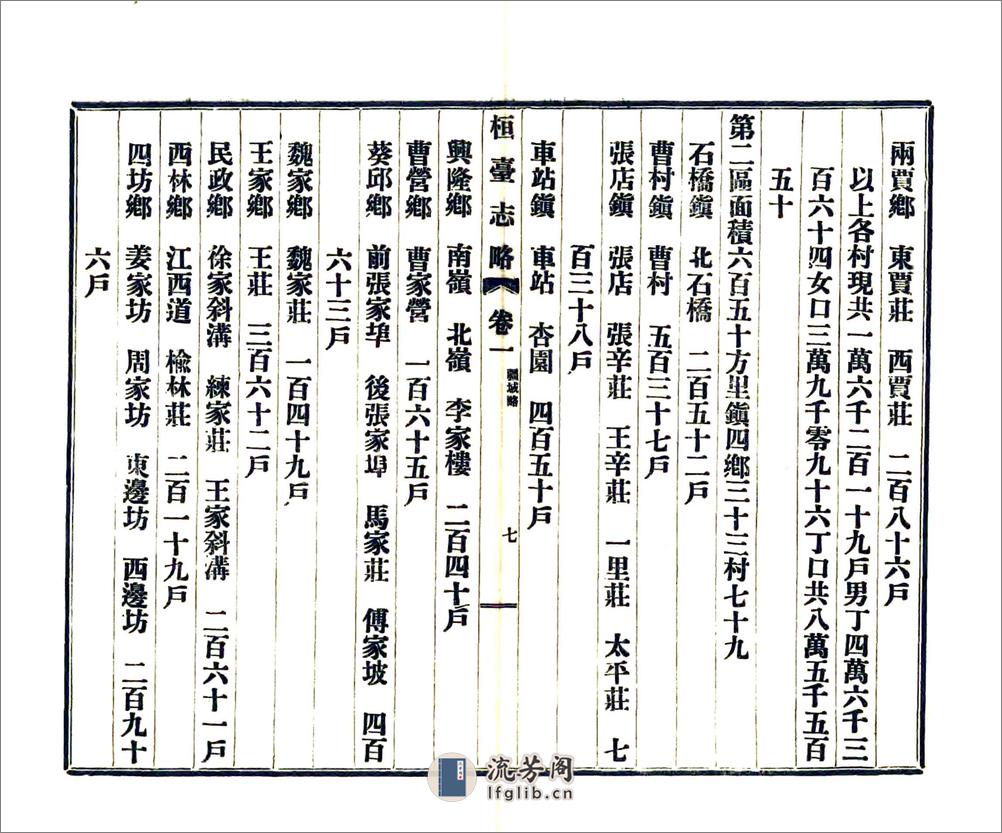 兩賈鄉　東賈莊　西賈莊　二百八十六戶
以上各村現共一萬六千二百一十九戶男丁四萬六千三
百六十四女口三萬九千零九十六丁口共八萬五千五百
五十
第二區面積六百五十方里鎮四鄉三十三村七十九
石橋鎮　北石橋　二百五十二戶
曹村鎮　曹村　五百三十七戶
張店鎮　張店　張辛莊　王辛莊　一里莊　太平莊　七
百三十八戶
車站鎮　車站　杏園　四百五十戶
桓臺志略　卷一　疆域略　七
興隆鄉　南嶺　北嶺　李家樓　二百四十戶
曹營鄉　曹家營　一百六十五戶
葵邱鄉　前張家埠　後張家埠　馬家莊　傅家坡　四百
六十三戶
魏家鄉　魏家莊　一百四十九戶
王家鄉　王莊　三百六十二戶
民政鄉　徐家斜溝　練家莊　王家斜溝　二百六十一戶
西林鄉　江西道　榆林莊　二百一十九戶
四坊鄉　姜家坊　周家坊　東邊坊　西邊坊　二百九十
六戶
流芳阁
lfglib.cn